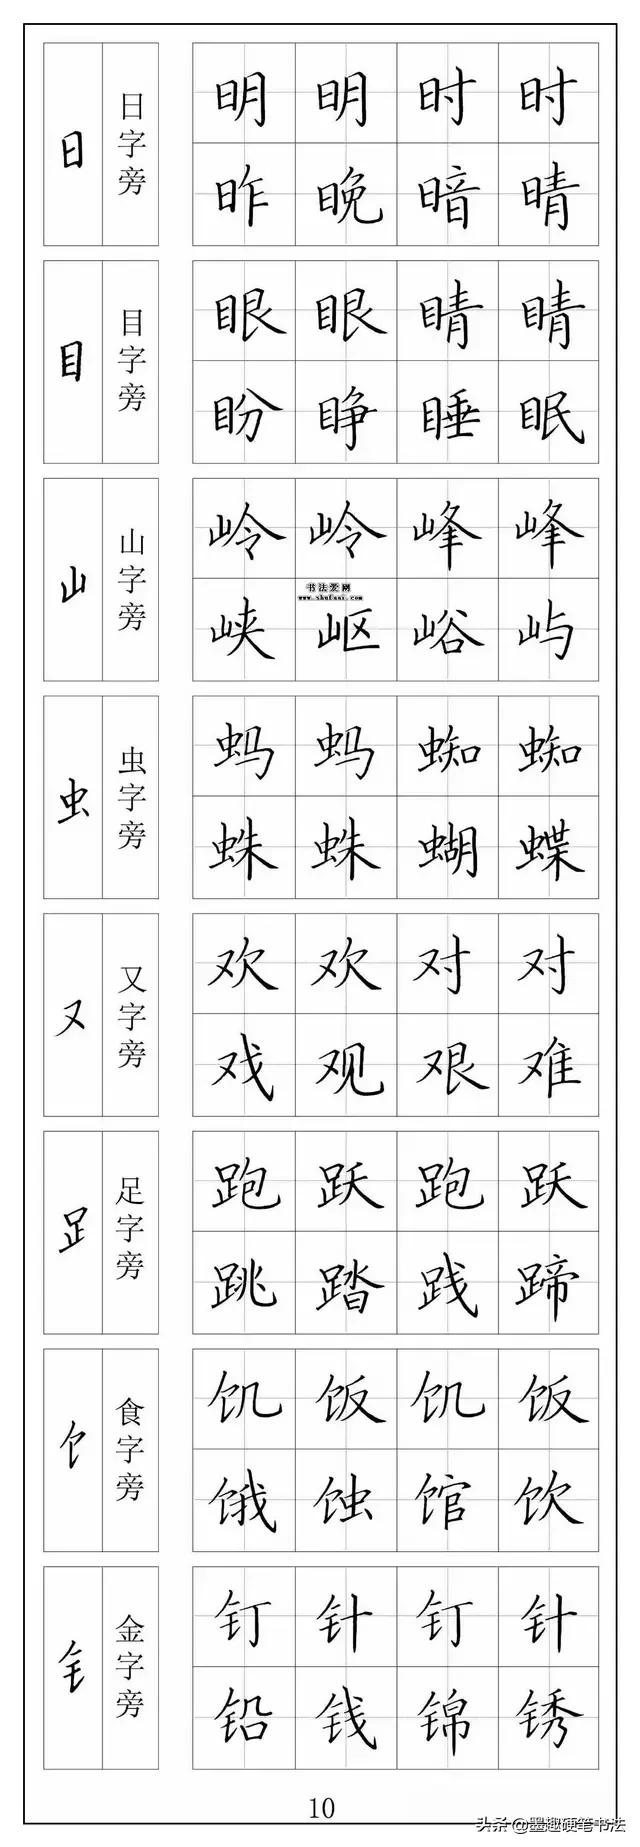 日 日字旁
明 明 时 时
昨 晚 暗 晴
目 目字旁
眼 眼 睛 睛
盼 睁 睡 眠
山 山字旁
岭 岭 峰 峰
书法爱网
www.shufaai.com
峡 岖 峪 屿
虫 虫字旁
蚂 蚂 蜘 蜘
蛛 蛛 蝴 蝶
又 又字旁
欢 欢 对 对
戏 观 艰 难
𧾷 足字旁
跑 跃 跑 跃
跳 踏 践 蹄
饣 食字旁
饥 饭 饥 饭
饿 蚀 馆 饮
钅 金字旁
钉 针 钉 针
铅 钱 锦 锈
10
头条@墨趣硬笔书法